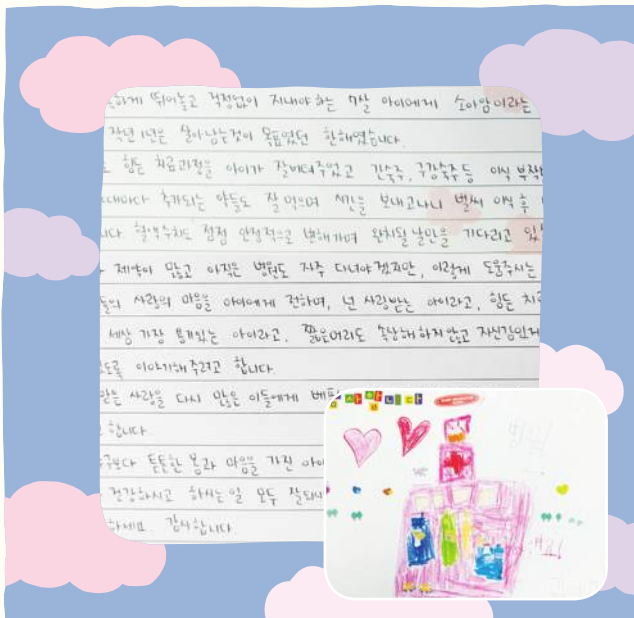 하게 뛰어놀고 걱정없이 지내야 하는 7살 아이에게 소아암이라는
작년 1년은 살아남는것이 목표였던 한해였습니다.
힘든 치료과정을 아이가 잘버텨주었고 간수치, 구강숙주등 이식 부작
때마다 추가되는 약들도 잘 먹으며 시간을 보내고나니 벌써 이식 후
혈액수치도 점점 안정적으로 변해가며 완치될 날만을 기다리고
제약이 많고 아직은 병원도 자주 다녀야 겠지만, 이렇게 도움주시는
들의 사랑의 마음을 아이에게 전하며, 넌 사랑받는 아이라고, 힘든
세상 가장 용기있는 아이라고, 짧은머리도 속상해하지않고 자신감있게
있도록 이야기해주려고 합니다.
받는 사랑을 다시 많은 이들에게
합니다.
튼튼한 몸과 마음을 가진
건강하시고 하시는 일 모두
하세요. 감사합니다
사랑합니다
병원